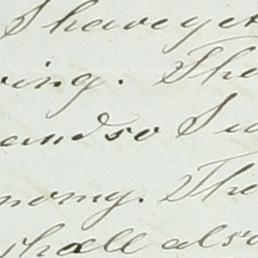 I have yet
ing. The
and so I
nomy. The
shall also